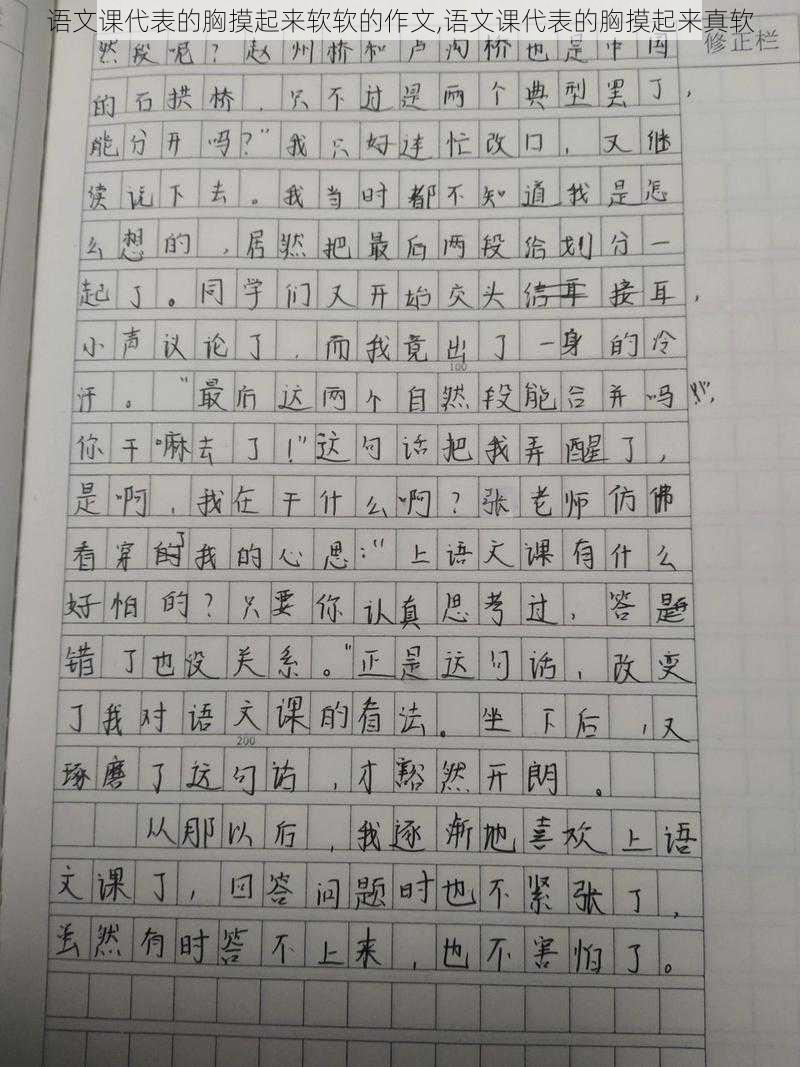 修正栏
然段呢？赵州桥和卢沟桥也是中国
的石拱桥，只不过是两个典型罢了，
能分开吗？”我只好连忙改口，又继
续说下去。我当时都不知道我是怎
么想的，居然把最后两段给划分一
起了。同学们又开始交头接耳，
小声议论了，而我竟出了一身的冷
100
汗。“最后这两个自然段能合并吗
你干嘛去了！”这句话把我弄醒了，
是啊，我在干什么啊？张老师仿佛
看穿了我的心思：“上语文课有什么
好怕的？只要你认真思考过，答题
错了也没关系。”正是这句话，改变
了我对语文课的看法。坐下后，又
200
琢磨了这句话，才豁然开朗。
从那以后，我逐渐地喜欢上语
文课了，回答问题时也不紧张了，
虽然有时答不上来，也不害怕了。